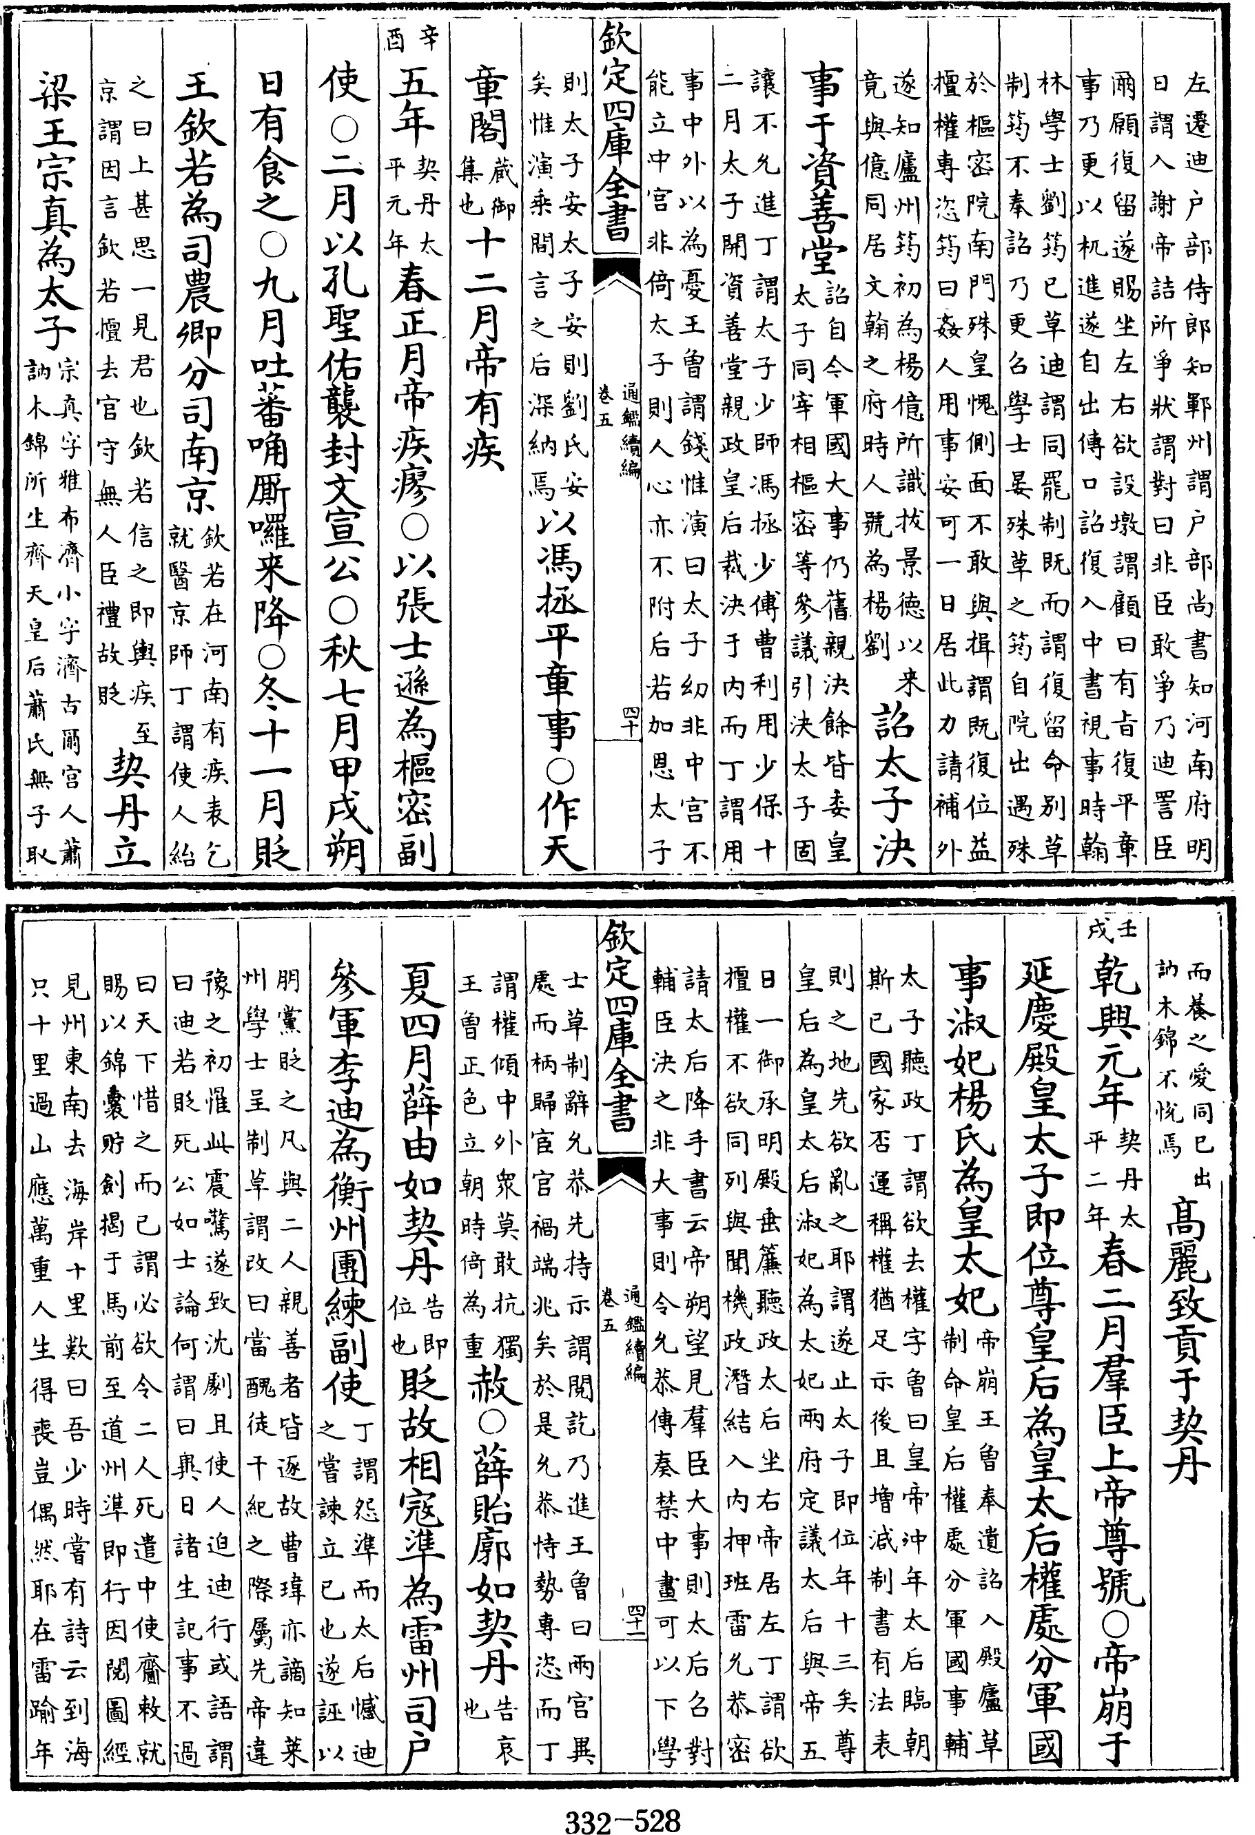 左遷迪户部侍郎知鄆州謂户部尚書知河南府明
日謂入謝帝詰所爭狀謂對曰非臣敢爭乃迪詈臣
爾願復留遂賜坐左右欲設墩謂顧曰有旨復平章
事乃更以杌進遂自出傳口詔復入中書視事時翰
林學士劉筠已草迪謂同罷制既而謂復留命别草
制筠不奉詔乃更召學士晏殊草之筠自院出遇殊
於樞密院南門殊皇愧側面不敢與揖謂既復位益
擅權專恣筠曰姦人用事安可一日居此力請補外
遂知廬州筠初為楊億所識拔景德以来
竟與億同居文翰之府時人號為楊劉
詔太子決
事于資善堂
詔自今軍國大事仍舊親決餘皆委皇
太子同宰相樞密等參議引決太子固
讓不允進丁謂太子少師馮拯少傅曹利用少保十
二月太子開資善堂親政皇后裁決于内而丁謂用
事中外以為憂王曾謂錢惟演曰太子幼非中宫不
能立中宫非倚太子則人心亦不附后若加恩太子
欽定四庫全書
通鑑續編
卷五
四十
則太子安太子安則劉氏安
矣惟演乘間言之后深納焉
以馮拯平章事○作天
章閣
藏御
集也
十二月帝有疾
辛
酉
五年
契丹太
平元年
春正月帝疾瘳○以張士遜為樞密副
使○二月以孔聖佑襲封文宣公○秋七月甲戌朔
日有食之○九月吐蕃唃厮囉来降○冬十一月貶
王欽若為司農卿分司南京
欽若在河南有疾表乞
就醫京師丁謂使人紿
之曰上甚思一見君也欽若信之即輿疾至
京謂因言欽若擅去官守無人臣禮故貶
契丹立
梁王宗真為太子
宗真字雅布濟小字濟古爾宫人蕭
訥木錦所生齊天皇后蕭氏無子取
而養之愛同已出
訥木錦不悦焉
髙麗致貢于契丹
壬
戌
乾興元年
契丹太
平二年
春二月羣臣上帝尊號○帝崩于
延慶殿皇太子即位尊皇后為皇太后權處分軍國
事淑妃楊氏為皇太妃
帝崩王曾奉遺詔入殿廬草
制命皇后權處分軍國事輔
太子聽政丁謂欲去權字曾曰皇帝沖年太后臨朝
斯已國家否運稱權猶足示後且增減制書有法表
則之地先欲亂之耶謂遂止太子即位年十三矣尊
皇后為皇太后淑妃為太妃兩府定議太后與帝五
日一御承明殿垂簾聽政太后坐右帝居左丁謂欲
擅權不欲同列與聞機政潛結入内押班雷允恭密
請太后降手書云帝朔望見羣臣大事則太后召對
輔臣決之非大事則令允恭傳奏禁中畫可以下學
欽定四庫全書
通鑑續編
卷五
四十一
士草制辭允恭先持示謂閲訖乃進王曾曰兩宫異
處而柄歸宦官禍端兆矣於是允恭恃勢專恣而丁
謂權傾中外衆莫敢抗獨
王曾正色立朝時倚為重
赦○薛貽廓如契丹
告哀
也
夏四月薛由如契丹
告即
位也
貶故相寇準為雷州司户
參軍李迪為衡州團練副使
丁謂怨準而太后憾迪
之嘗諫立已也遂誣以
朋黨貶之凡與二人親善者皆逐故曹瑋亦謫知萊
州學士呈制草謂改曰當醜徒干紀之際屬先帝違
豫之初罹此震驚遂致沈劇且使人迫迪行或語謂
曰迪若貶死公如士論何謂曰異日諸生記事不過
曰天下惜之而已謂必欲令二人死遣中使齎敕就
賜以錦囊貯劍揭于馬前至道州準即行因閲圖經
見州東南去海岸十里歎曰吾少時嘗有詩云到海
只十里過山應萬重人生得喪豈偶然耶在雷踰年
332-528